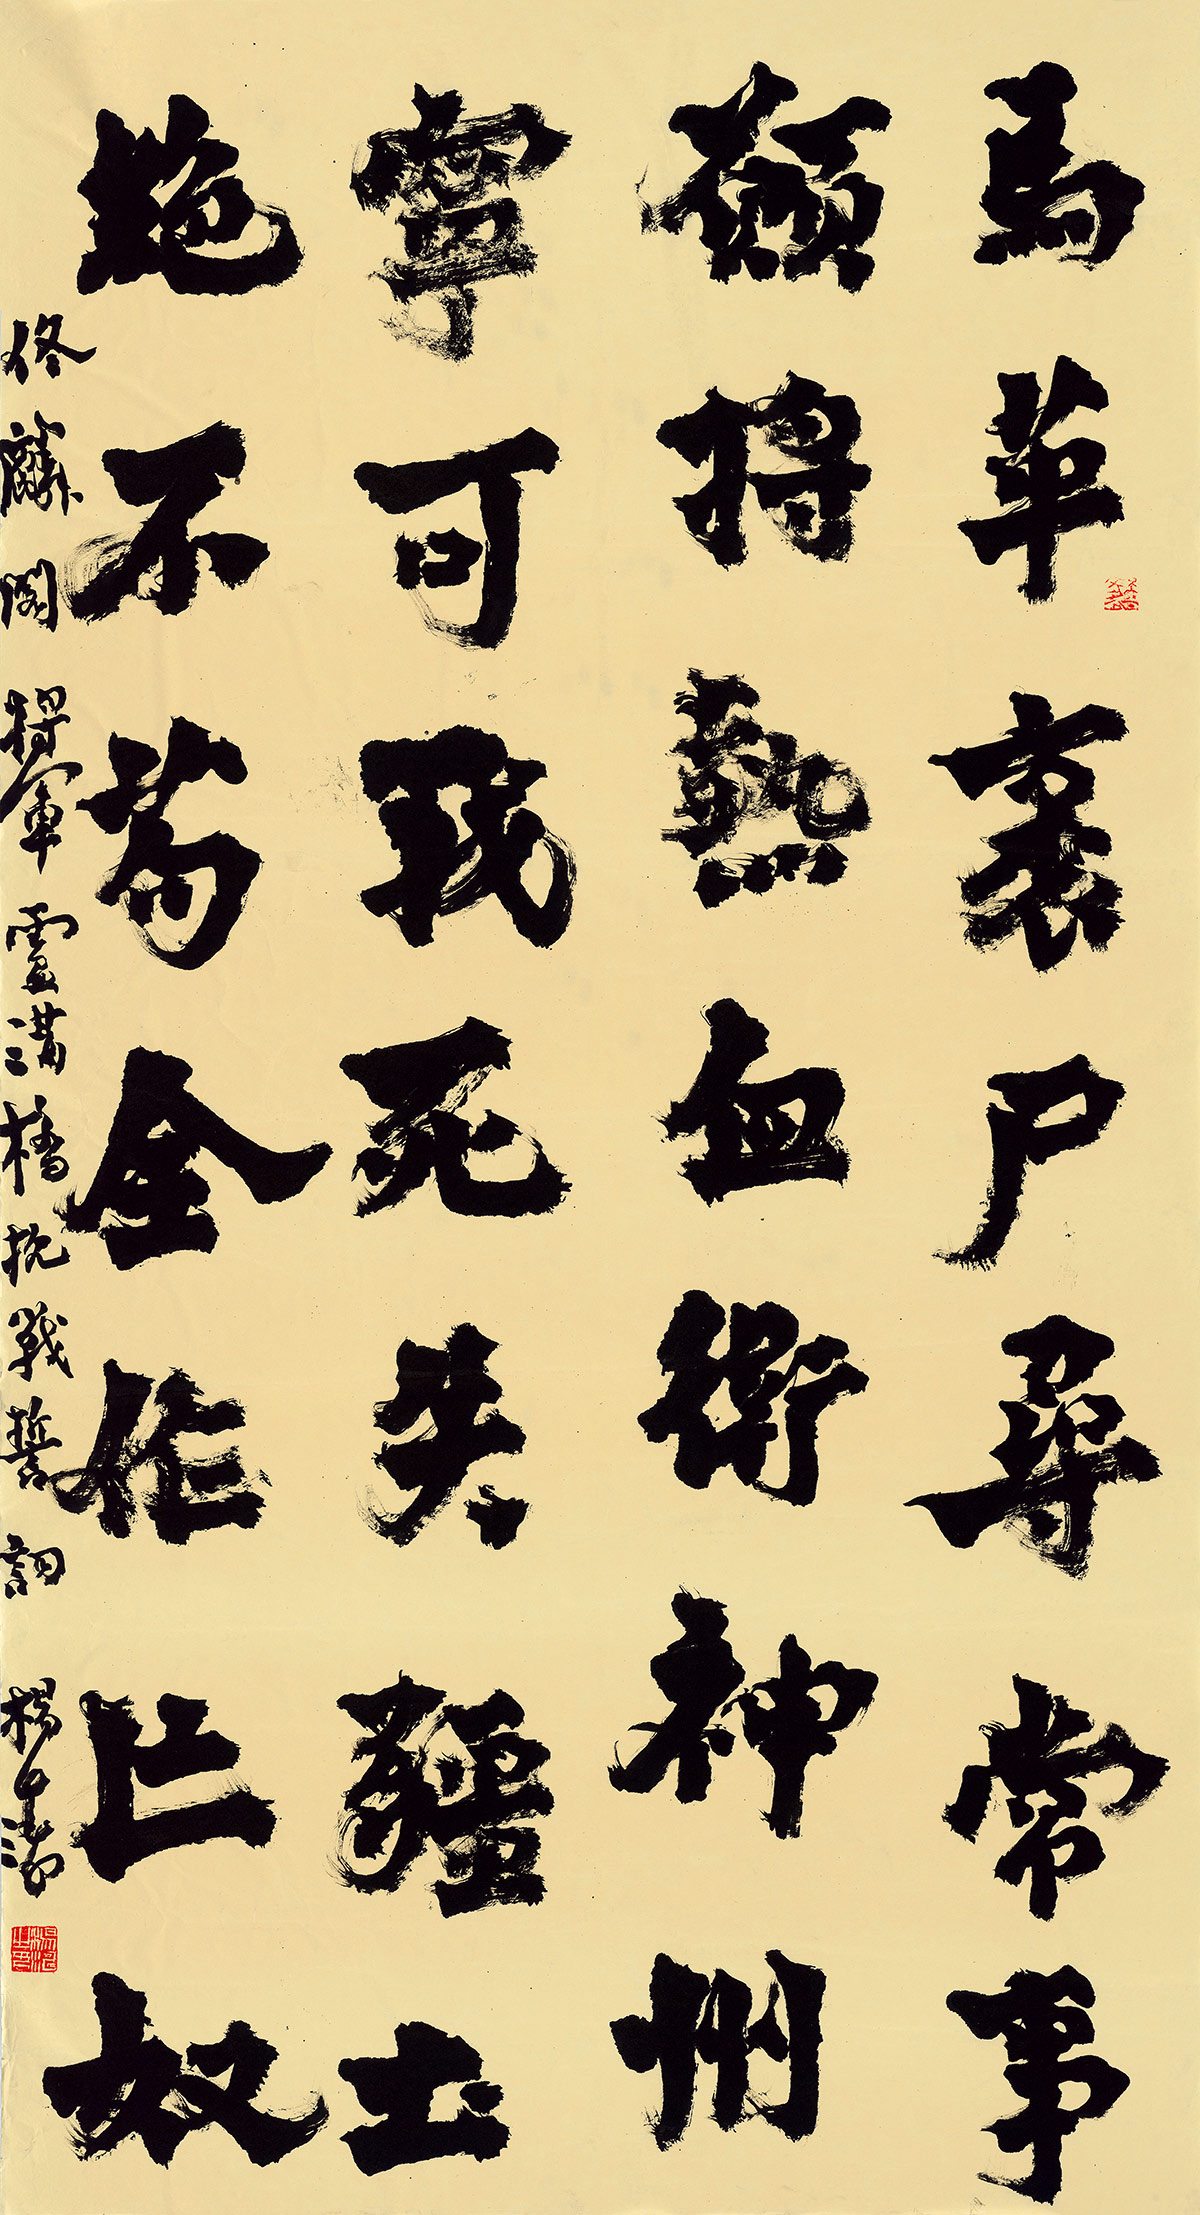 馬革裹尸尋常事
願將熱血衛神州
寧可戰死失疆土
絕不苟全作亡奴
佟麟閣將軍盧溝橋抗戰誓詞 楊